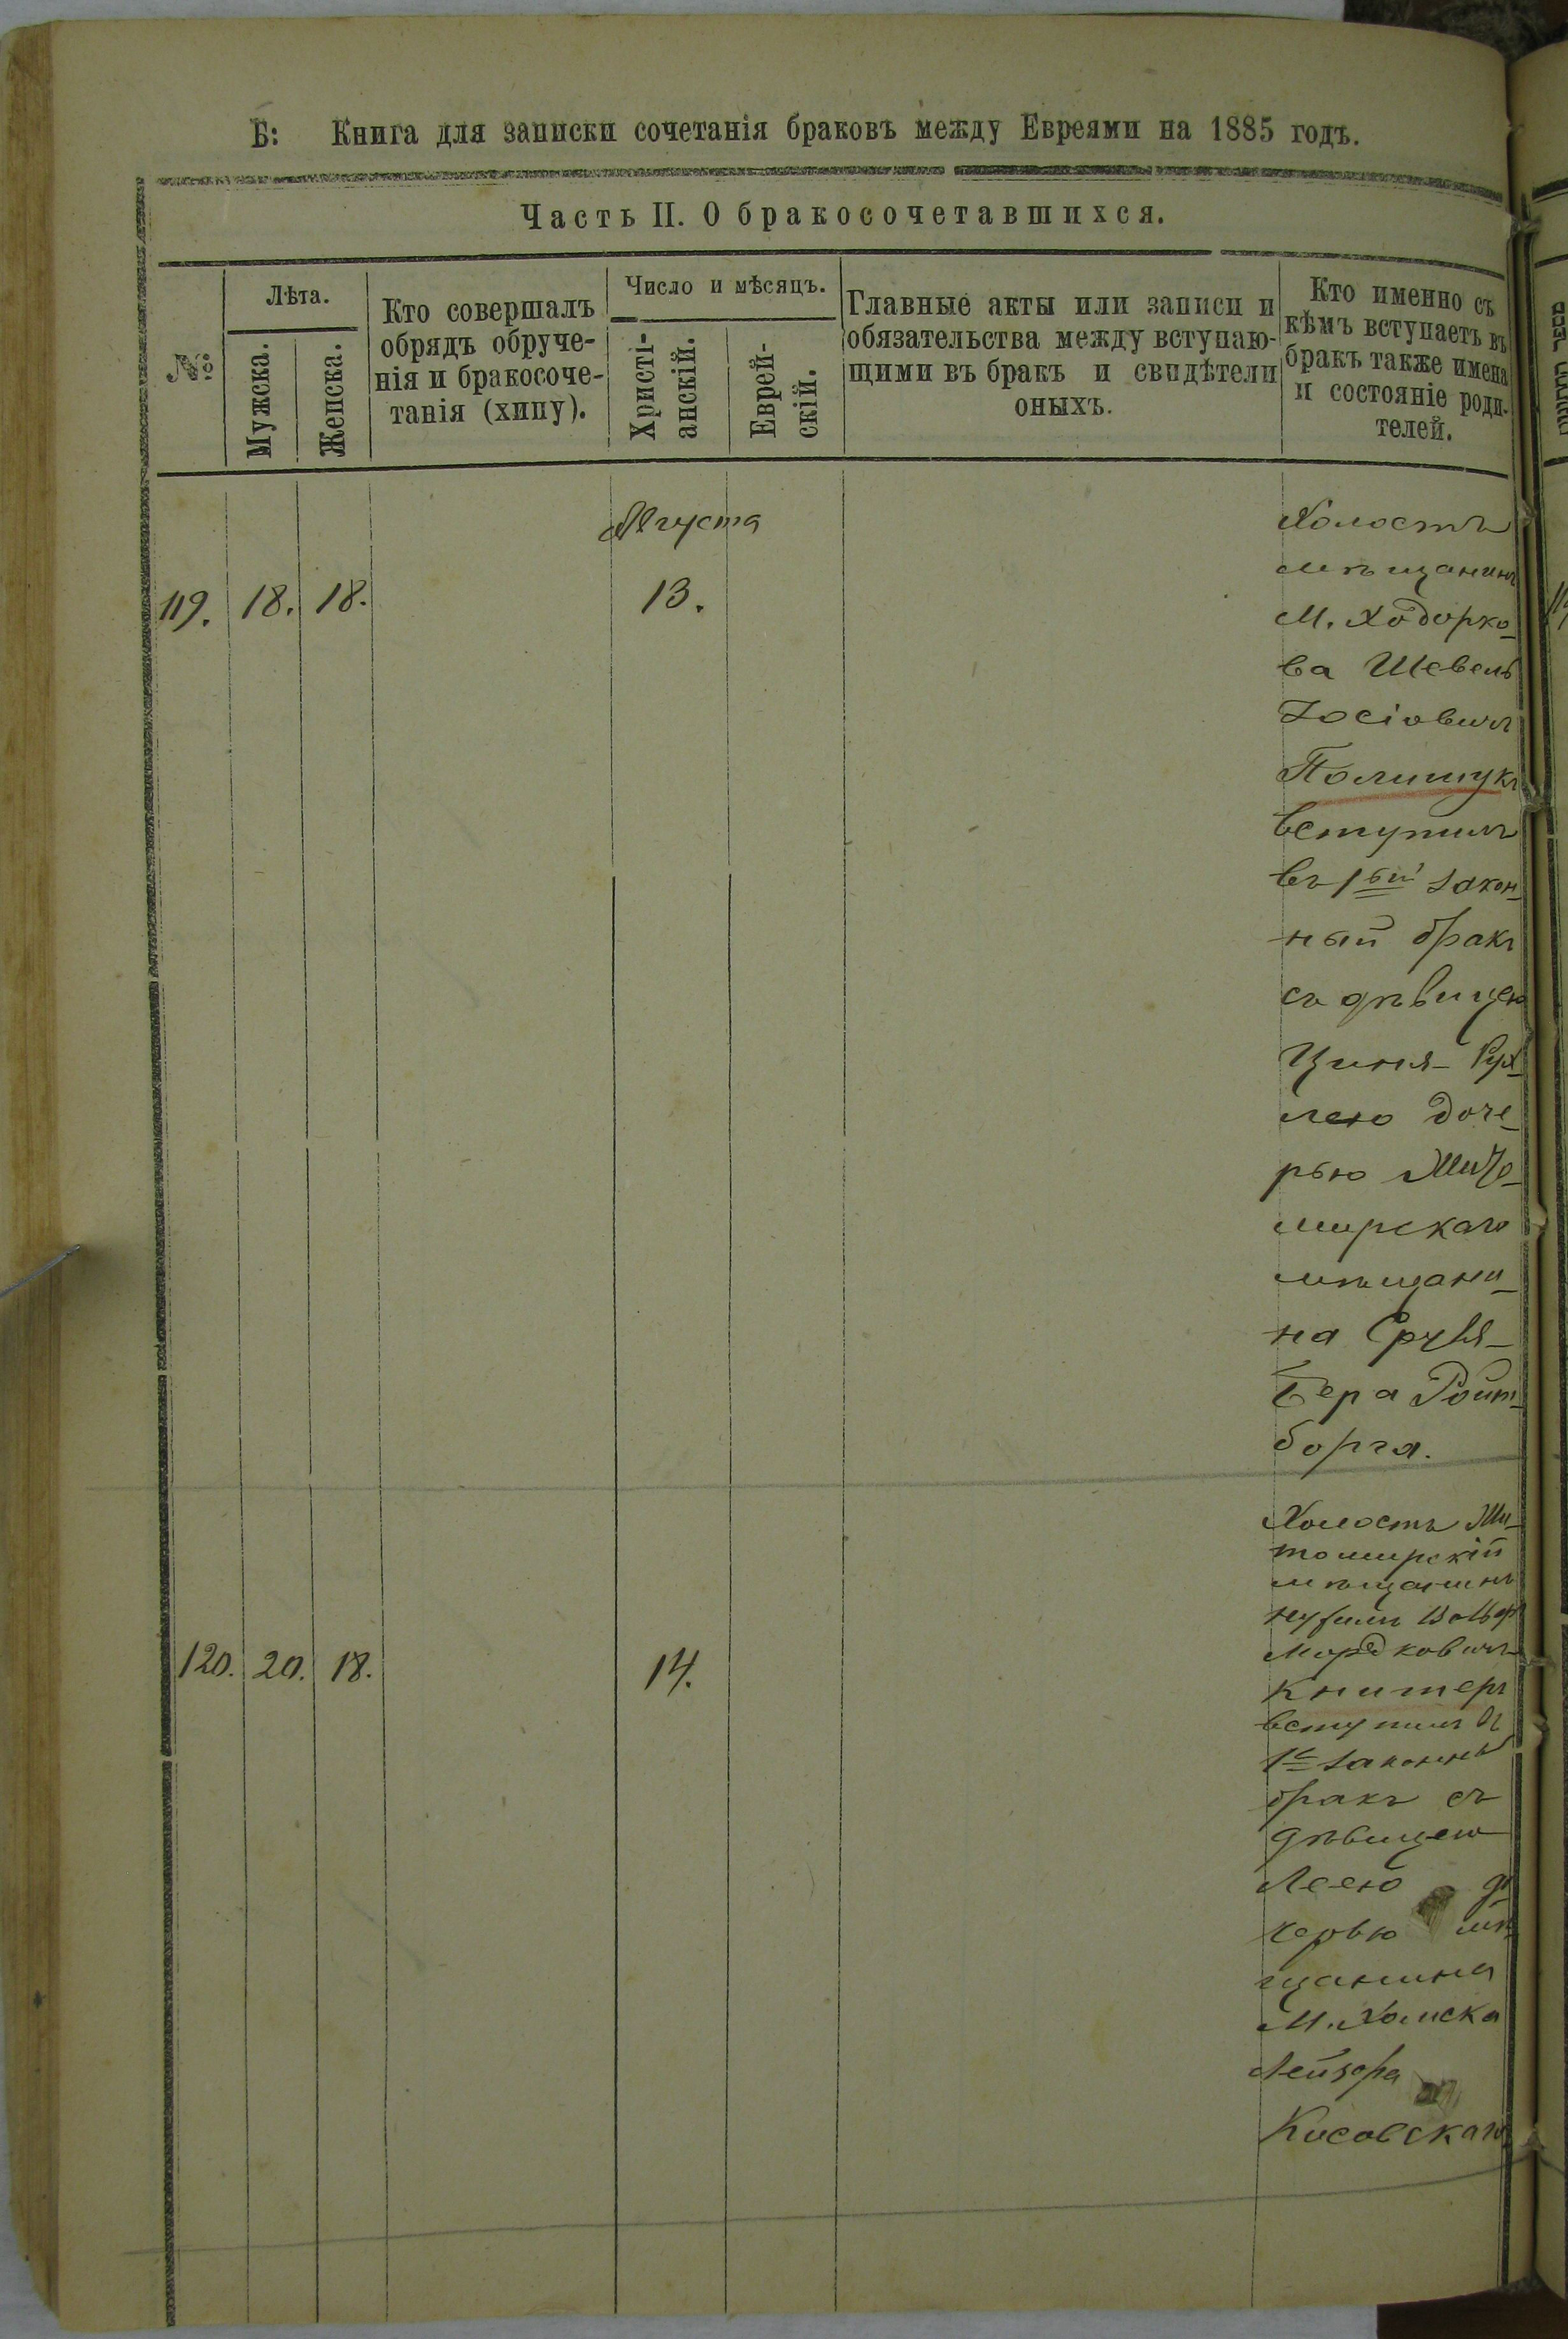 Б: Книга для записки сочетанія браковъ между Евреями на 1885 годъ.
Часть II. О бракосочетавшихся.
№
Лѣта.
Мужска.
Женска.
Кто совершалъ
обрядъ обруче-
нія и бракосоче-
танія (хипу).
Число и мѣсяцъ.
Христі-
анскій.
Еврей-
скій.
Главные акты или записи и
обязательства между вступаю-
щими въ бракъ и свидѣтели
оныхъ.
Кто именно съ
кѣмъ вступаетъ въ
бракъ также имена
и состояніе роди-
телей.
Августа
119. 18. 18. 13.
Холостъ
мѣщанинъ
М. Ходорко-
ва Шевель
Іосіовичъ
Полищукъ
вступилъ
въ 1ый закон-
ный бракъ
съ дѣвицею
Циня-Рух-
лею доче-
рью Жито-
мирскаго
мѣщани-
на
Бера Ройт-
борга.
120. 20. 18. 14.
Холостъ Жи-
томирскій
мѣщанинъ
Мордковичъ
Книтеръ
вступилъ въ
1й законный
бракъ съ
дѣвицею
Леею до-
черью мѣ-
щанина
М. Хомска
Лейзора
Косовскаго